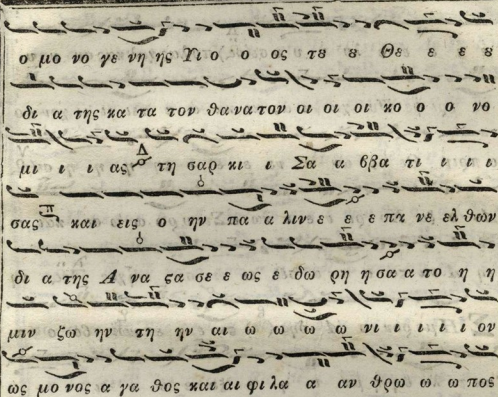 ο μο νο γε νη ης Υι ο ο ος τȣ ȣ Θε ε ε ε
δι α της κα τα τον θα να τον οι οι οι κο ο ο νο
μι ι ι ας τη σαρ κι ι Σα α ββα τι ι ι ι
σας και εις ο ην πα α λιν ε ε ε πα νε ελ θων
δι α της Α να ϛα σε ε ως ε δω ρη η σα α το η η
μιν ζω ην τη ην αι ω ω ω ω νι ι ι ι ι ον
ως μο νος α γα θος και αι φι λα α αν θρω ω ω πος